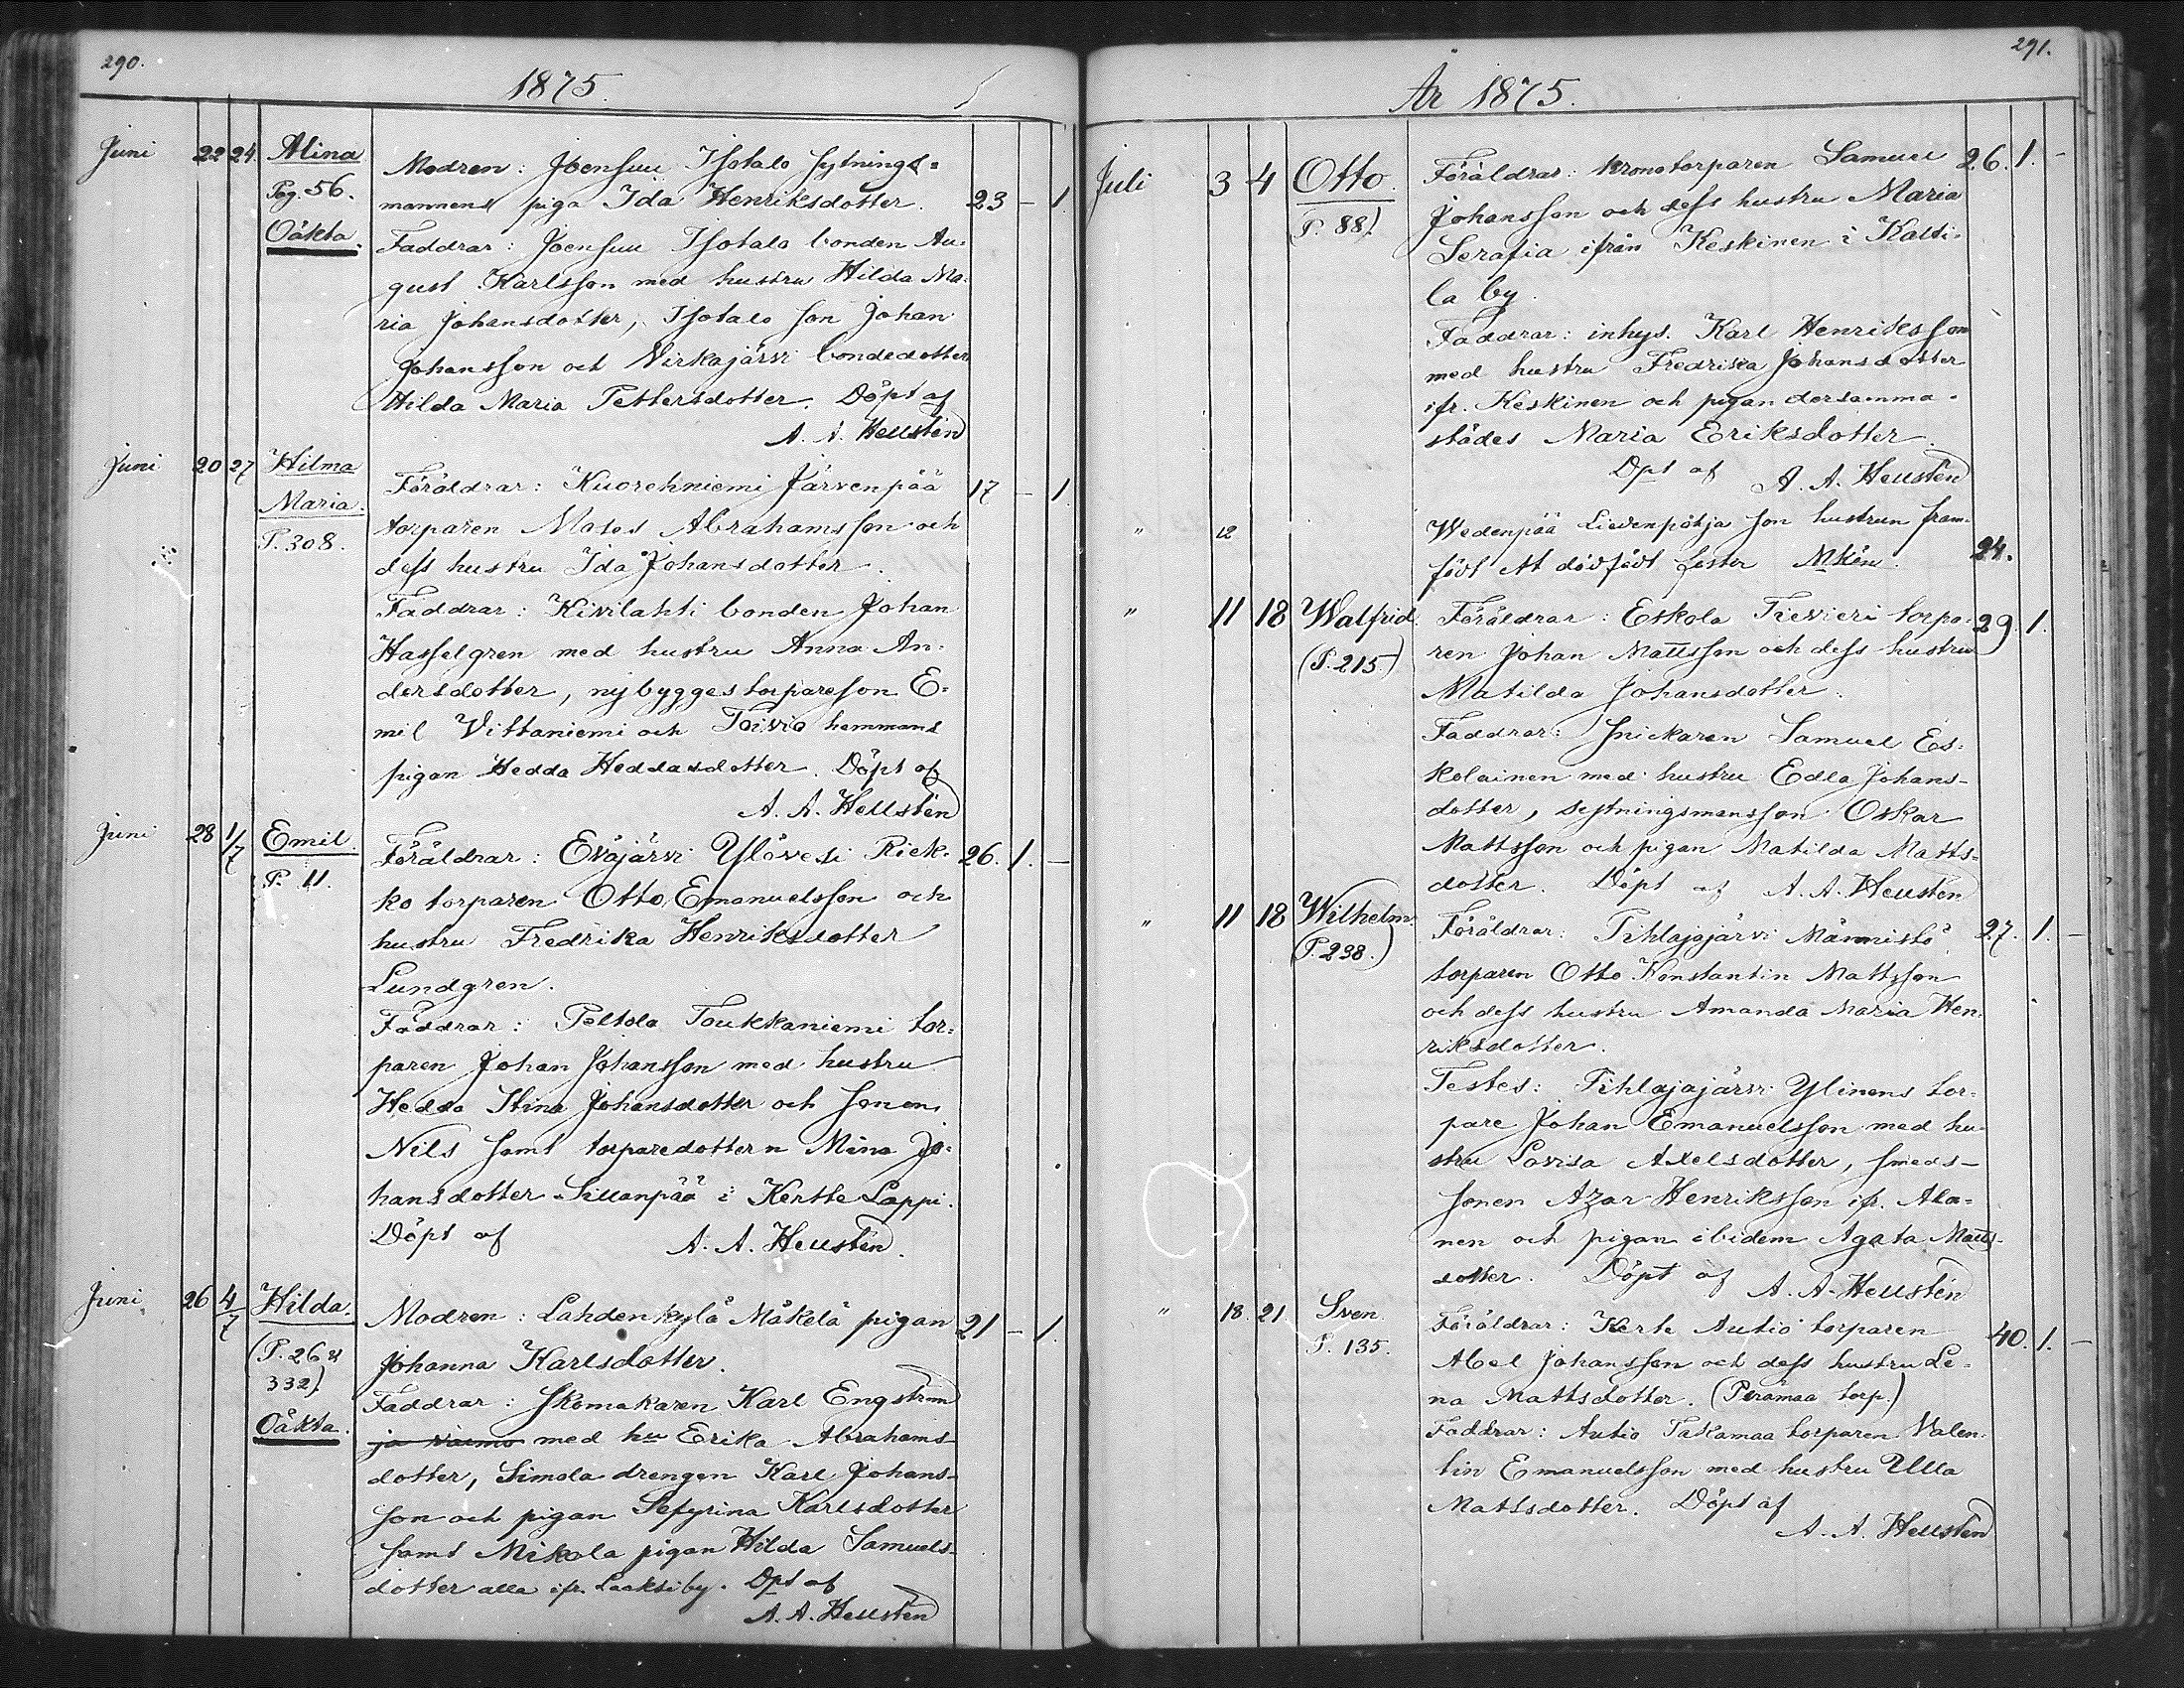 290.
1875.
Juni 22 24. Alina Modren: Joensuu Isotalo sytnings=
Pag. 56. mannens piga Ida Henriksdotter. 23 — 1
Oäkta. Faddrar: Joensuu Isotalo bonden Au=
gust Karlsson med hustru Hilda Ma=
ria Johansdotter, Isotalo son Johan
Johansson och Virkajärvi bondedotter
Hilda Maria Pettersdotter. Döpt af
A. A. Hellstén
Juni 20 27 Hilma Föräldrar: Kuorehniemi Järvenpää 17 — 1
Maria. torparen Moses Abrahamsson och
P. 308. dess hustru Ida Johansdotter.
Faddrar: Kivilahti bonden Johan
Hasselgren med hustru Anna An=
dersdotter, nybyggestorpareson E=
mil Vittaniemi och Toivio hemmans
pigan Hedda Heddasdotter. Döpt af
A. A. Hellstén
Juni 28 1/7 Emil. Föräldrar: Eväjärvi Ylövesi Riek= 26. 1. —
P. 11. ko torparen Otto Emanuelsson och
hustru Fredrika Henriksdotter
Lundgren.
Faddrar: Peltola Toukkaniemi tor=
paren Johan Johansson med hustru
Hedda Stina Johansdotter och sonen
Nils samt torparedottern Mina Jo=
hansdotter Sillanpää i Kertte Lappi.
Döpt af A. A. Hellstén.
Juni 26 4/7 Hilda. Modren: Lahdenkylä Mäkelä pigan 21 — 1.
(P. 26 &
332). Johanna Karlsdotter.
Faddrar: Skomakaren Karl Engström
Oäkta. ja vaimo med hu Erika Abrahams-
dotter, Simola drengen Karl Johans-
son och pigan Sefyrina Karlsdotter
samt Mikola pigan Hilda Samuels-
dotter alla ifr. Laaksi by. Dpt af
A. A. Hellstén
291.
År 1875.
Juli 3 4 Otto. Föräldrar: kronotorparen Samuel 26. 1. —
(P. 88). Johansson och dess hustru Maria
Serafia ifrån Keskinen i Kalti=
la by.
Faddrar: inhys. Karl Henriksson
med hustru Fredrika Johansdotter
ifr. Keskinen och pigan dersamma=
städes Maria Eriksdotter.
Dpt af A. A. Hellstén
" 12 Wedenpää Lievenpohja son hustrun fram=
födt ett dödfödt foster Mkön. 24.
" 11 18 Walfrid. Föräldrar: Eskola Trevieri torpa= 29. 1.
(P. 215.) ren Johan Mattsson och dess hustru
Matilda Johansdotter.
Faddrar: Snickaren Samuel Es=
kolainen med hustru Edla Johans-
dotter, sytningsmansson Oskar
Mattsson och pigan Matilda Matts=
dotter. Döpt af A. A. Hellstén
" 11 18 Wilhelm. Föräldrar: Pihlajajärvi Männistö 27. 1. —
(P. 238.) torparen Otto Konstantin Mattsson
och dess hustru Amanda Maria Hen=
riksdotter.
Testes: Pihlajajärvi Ylinens tor=
pare Johan Emanuelsson med hu=
stru Lovisa Axelsdotter, smeds-
sonen Azar Henriksson ifr. Ala=
nen och pigan ibidem Agata Matts-
dotter. Döpt af A. A. Hellstén
" 18. 21 Sven. Föräldrar: Kerte Autio torparen 40. 1. —
P. 135. Abel Johansson och dess hustru Le=
na Mattsdotter. (Perämaa torp.)
Faddrar: Autio Takamaa torparen Valen=
tin Emanuelsson med hustru Ulla
Mattsdotter. Döpt af
A. A. Hellstén